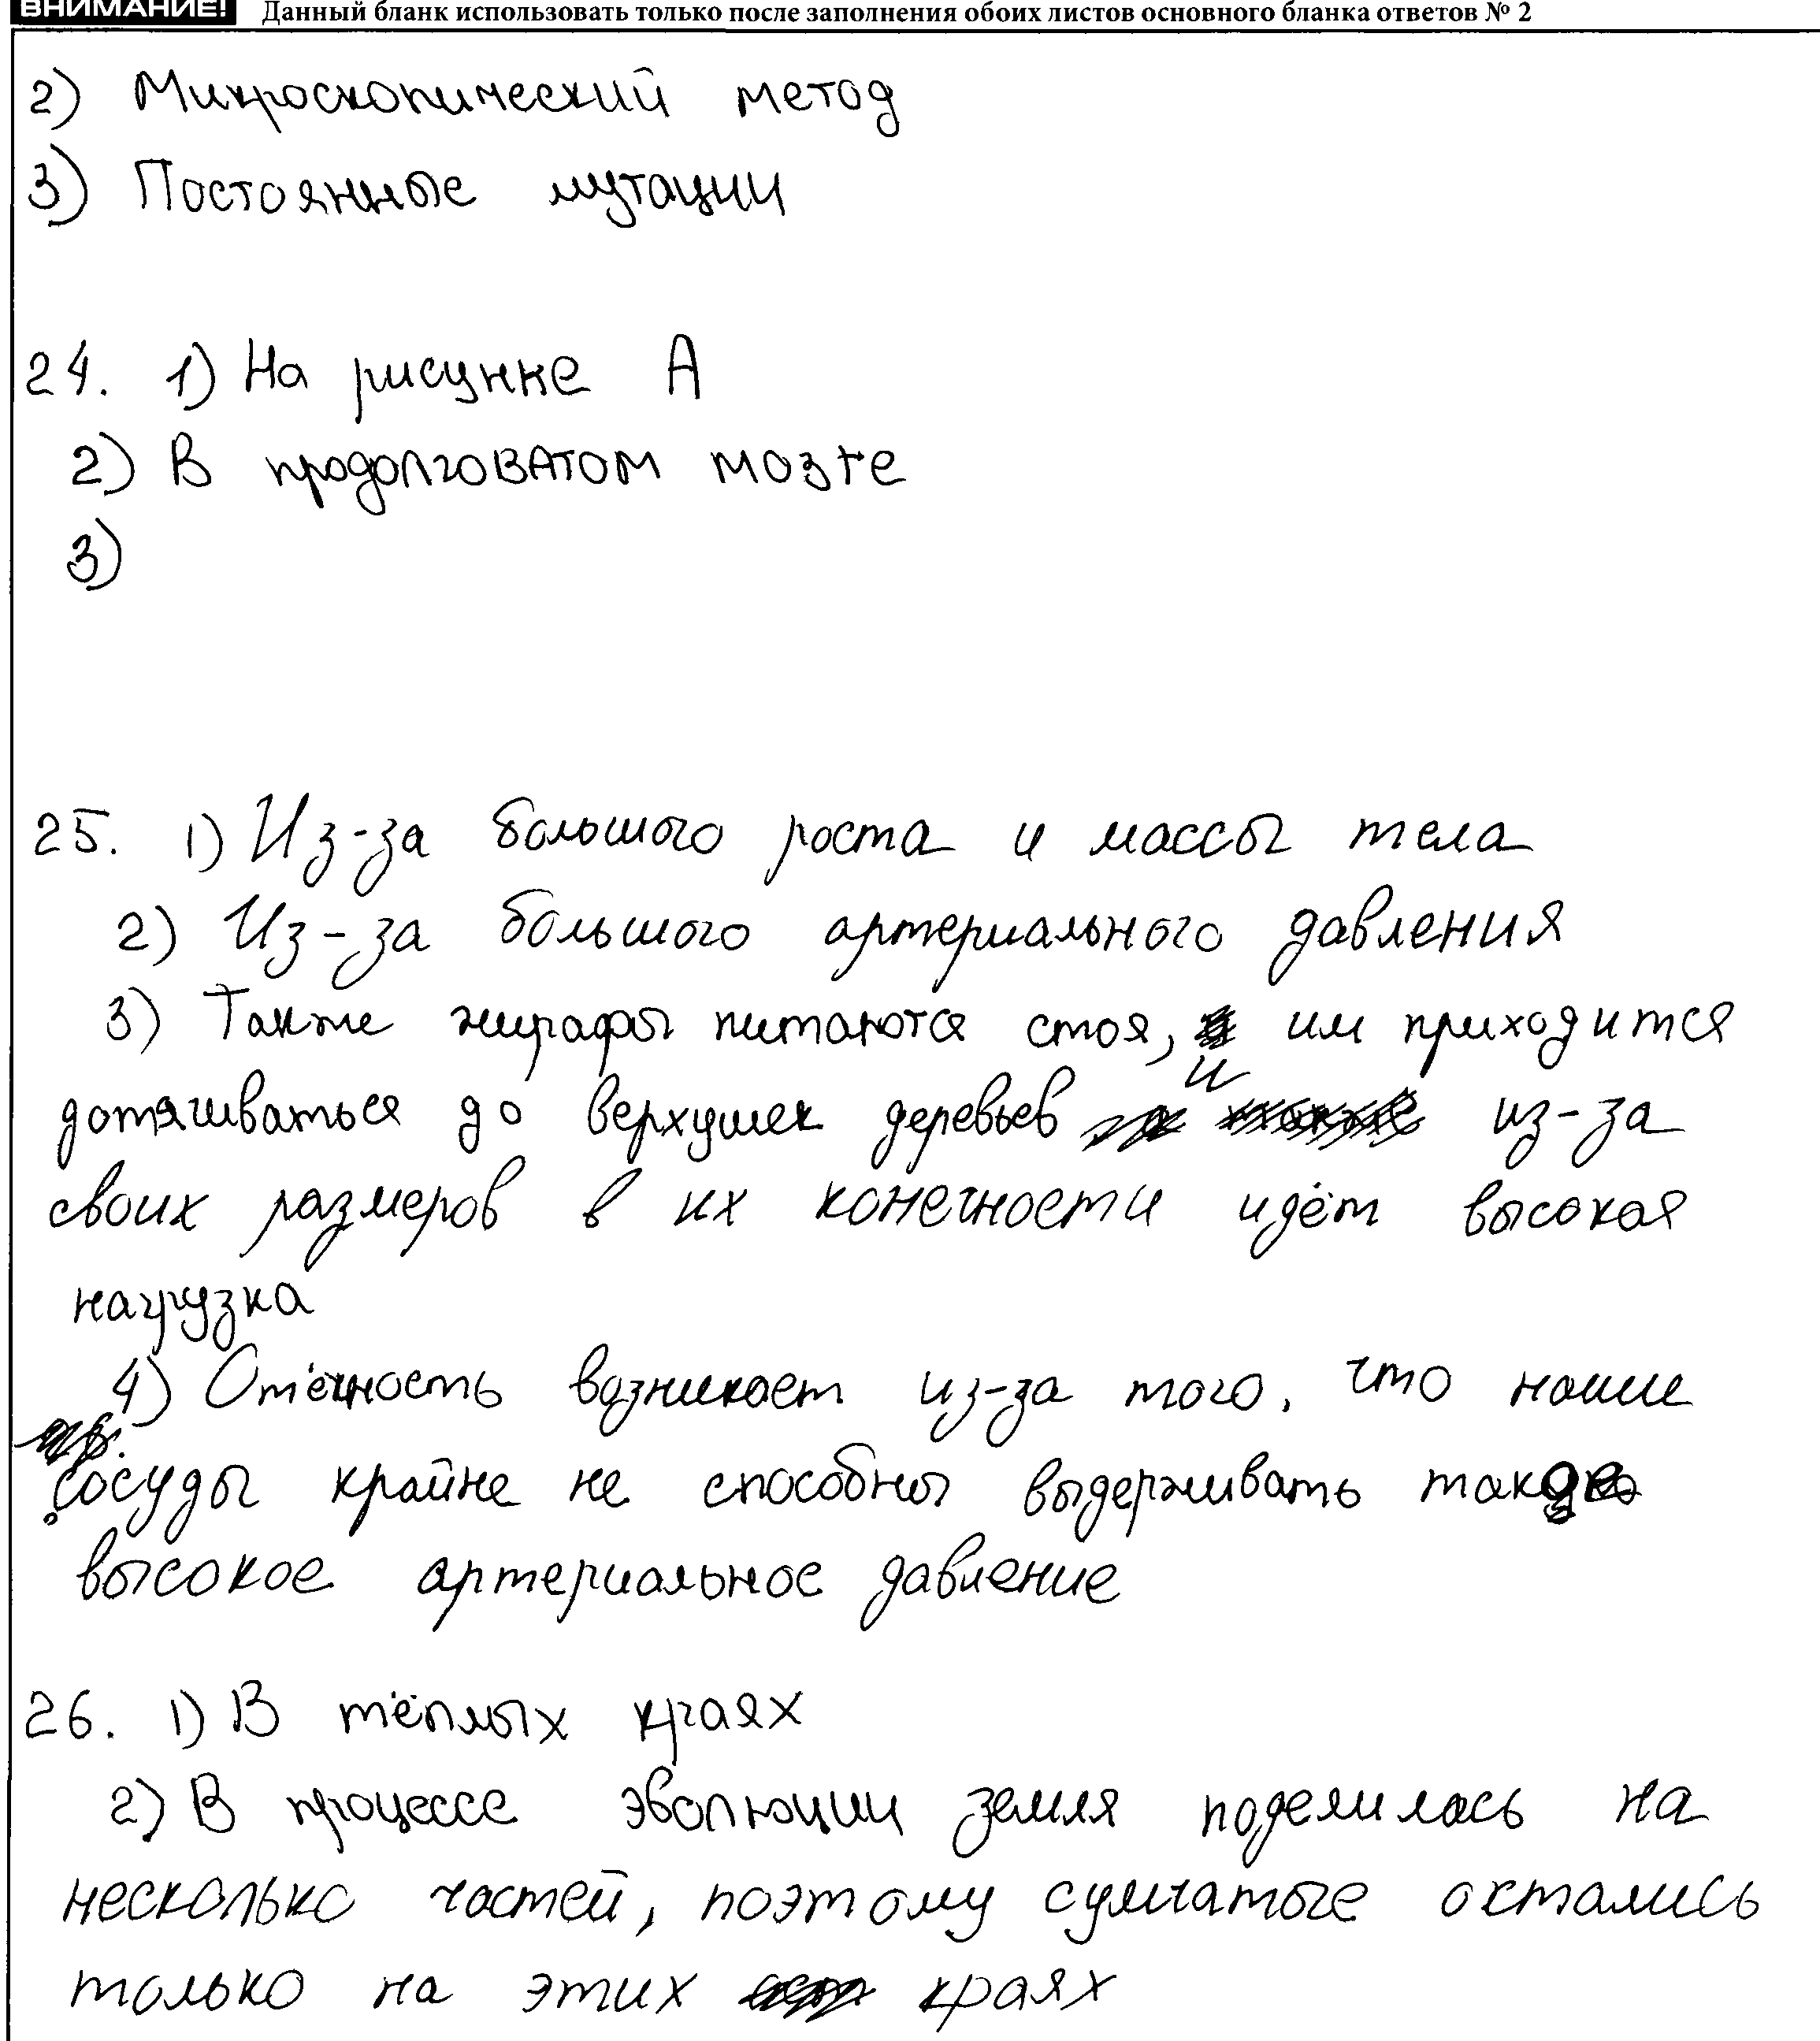 ВНИМАНИЕ! Данный бланк использовать только после заполнения обоих листов основного бланка ответов № 2
2) Микроскопический метод
3) Постоянные мутации
24. 1) На рисунке А
2) В продолговатом мозге
3)
25. 1) Из-за большого роста и массы тела
2) Из-за большого артериального давления
3) Также жирафы питаются стоя, им приходится
дотягиваться до верхушек деревьев и из-за
своих размеров в их конечности идёт высокая
нагрузка
4) Отёчность возникает из-за того, что наши
сосуды крайне не способны выдерживать такое
высокое артериальное давление
26. 1) В тёплых краях
2) В процессе эволюции земля поделилась на
несколько частей, поэтому сумчатые остались
только на этих краях